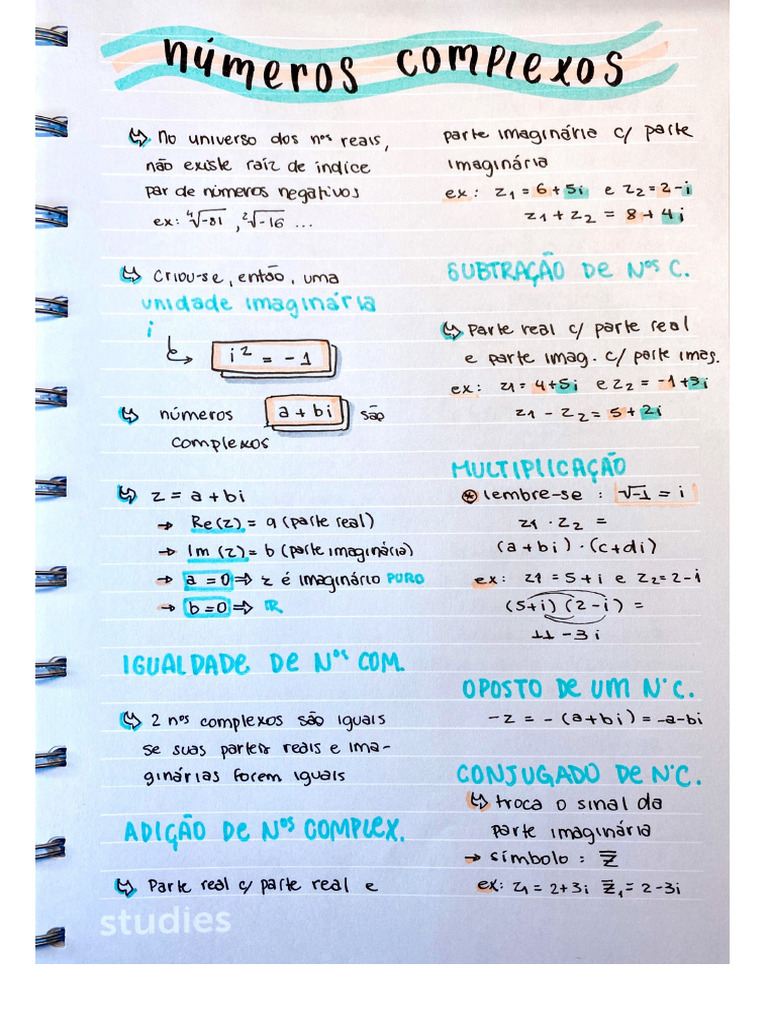 números complexos
No universo dos nos reais,
não existe raíz de índice
par de números negativos
ex: ⁴√-81 , ²√-16 ...
Criou-se, então, uma
unidade imaginária
i
i² = -1
números a + bi são
complexos
z = a + bi
→ Re(z) = a (parte real)
→ Im (z) = b (parte imaginária)
→ a = 0 ⇒ z é imaginário PURO
→ b = 0 ⇒ IR
IGUALDADE DE Nos COM.
2 nos complexos são iguais
se suas partes reais e ima-
ginárias forem iguais
ADIÇÃO DE Nos COMPLEX.
Parte real c/ parte real e
studies
parte imaginária c/ parte
imaginária
ex: z1 = 6 + 5i e z2 = 2 - i
z1 + z2 = 8 + 4i
SUBTRAÇÃO DE Nos C.
Parte real c/ parte real
e parte imag. c/ parte imag.
ex: z1 = 4 + 5i e z2 = -1 + 3i
z1 - z2 = 5 + 2i
MULTIPLICAÇÃO
lembre-se : √-1 = i
z1 · z2 =
(a + bi) · (c + di)
ex: z1 = 5 + i e z2 = 2 - i
(5 + i) (2 - i) =
11 - 3i
OPOSTO DE UM N° C.
-z = - (a + bi) = -a - bi
CONJUGADO DE N° C.
troca o sinal da
parte imaginária
→ símbolo : z̅
ex: z1 = 2 + 3i z̅1 = 2 - 3i